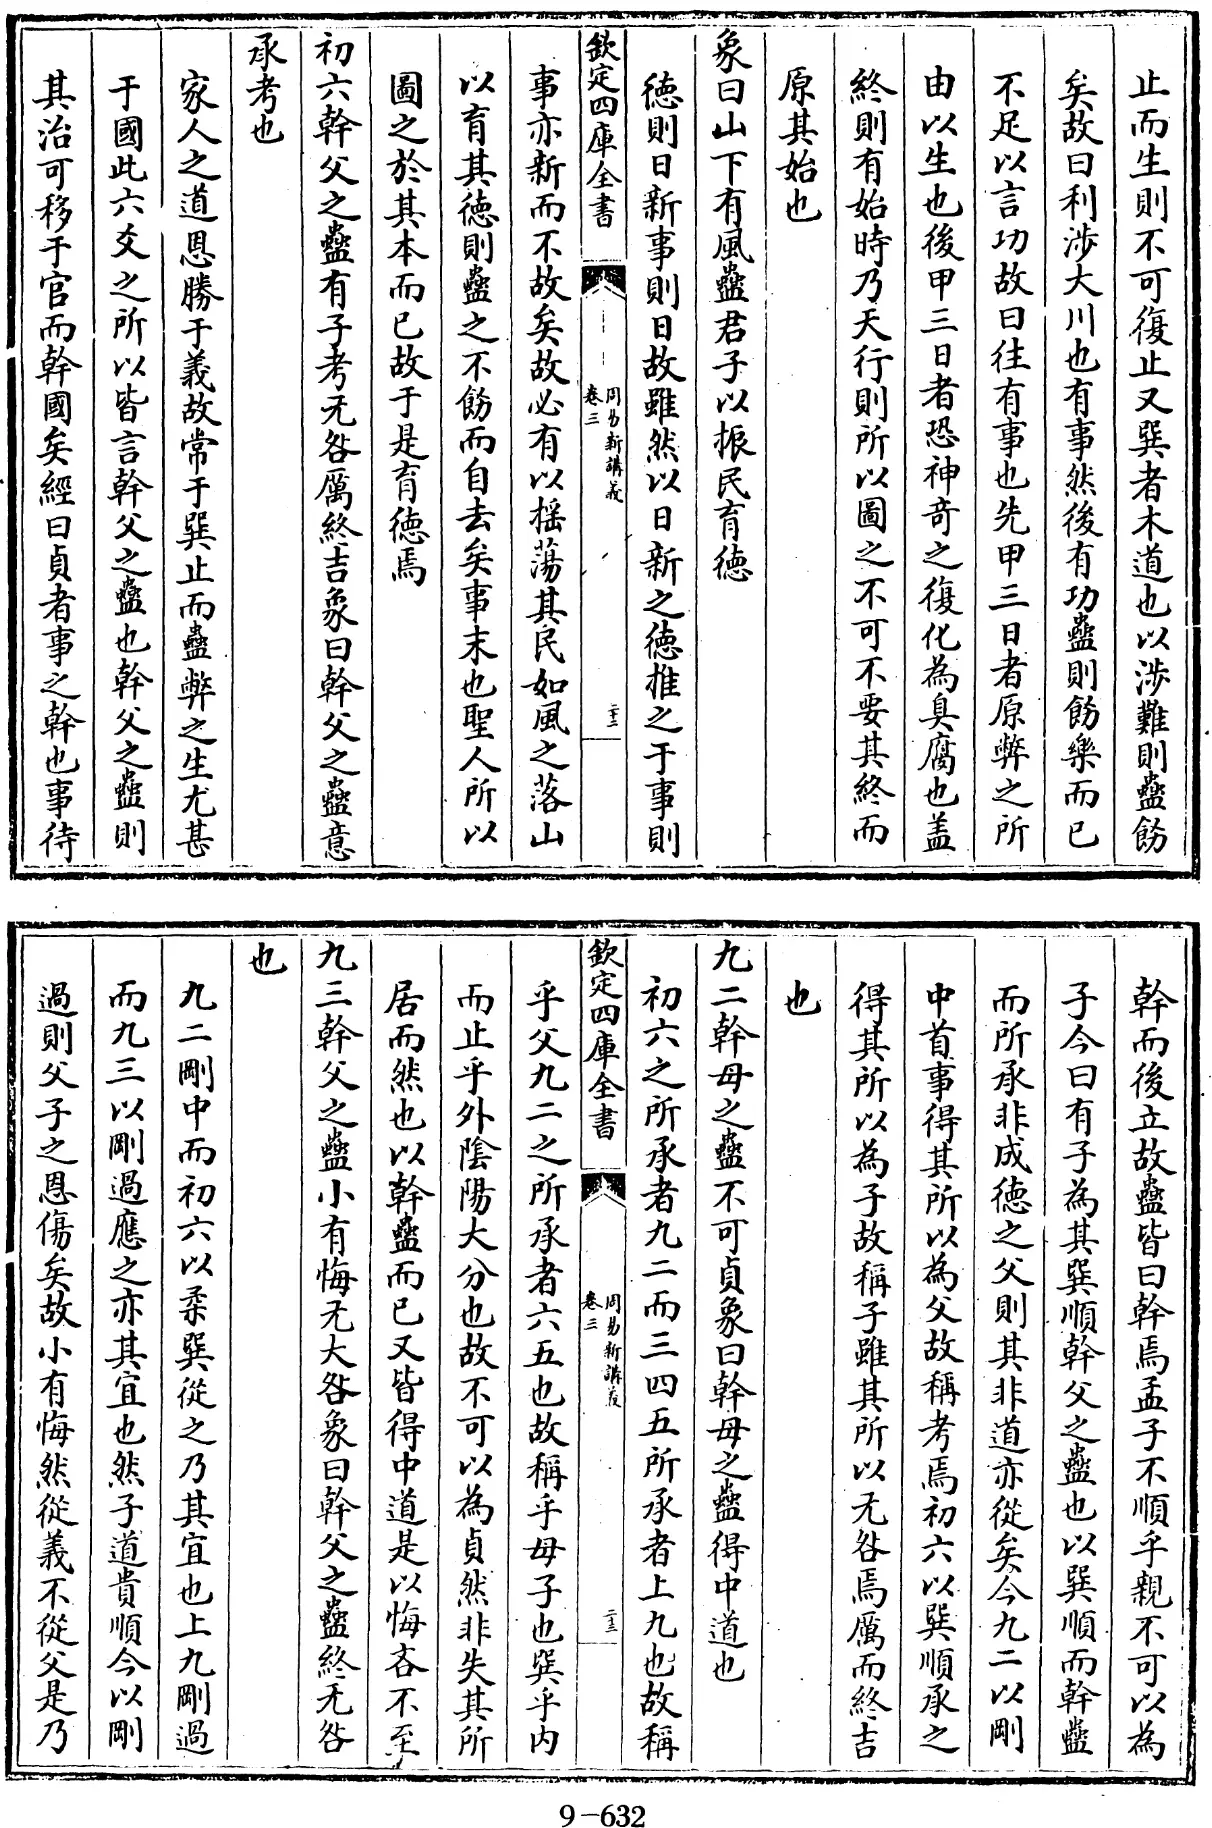 止而生則不可復止又巽者木道也以涉難則蠱飭
矣故曰利涉大川也有事然後有功蠱則飭樂而已
不足以言功故曰往有事也先甲三日者原弊之所
由以生也後甲三日者恐神奇之復化為臭腐也盖
終則有始時乃天行則所以圖之不可不要其終而
原其始也
象曰山下有風蠱君子以振民育徳
徳則日新事則日故雖然以日新之徳推之于事則
欽定四庫全書
周易新講義
卷三
二十二
事亦新而不故矣故必有以搖蕩其民如風之落山
以育其徳則蠱之不飭而自去矣事末也聖人所以
圖之於其本而已故于是育徳焉
初六幹父之蠱有子考无咎厲終吉象曰幹父之蠱意
承考也
家人之道恩勝于義故常于巽止而蠱弊之生尤甚
于國此六爻之所以皆言幹父之蠱也幹父之蠱則
其治可移于官而幹國矣經曰貞者事之幹也事待
幹而後立故蠱皆曰幹焉孟子不順乎親不可以為
子今曰有子為其巽順幹父之蠱也以巽順而幹蠱
而所承非成徳之父則其非道亦從矣今九二以剛
中首事得其所以為父故稱考焉初六以巽順承之
得其所以為子故稱子雖其所以无咎焉厲而終吉
也
九二幹母之蠱不可貞象曰幹母之蠱得中道也
初六之所承者九二而三四五所承者上九也故稱
欽定四庫全書
周易新講義
卷三
二十三
乎父九二之所承者六五也故稱乎母子也巽乎内
而止乎外陰陽大分也故不可以為貞然非失其所
居而然也以幹蠱而已又皆得中道是以悔吝不至
九三幹父之蠱小有悔无大咎象曰幹父之蠱終无咎
也
九二剛中而初六以柔巽從之乃其宜也上九剛過
而九三以剛過應之亦其宜也然子道貴順今以剛
過則父子之恩傷矣故小有悔然從義不從父是乃
9-632